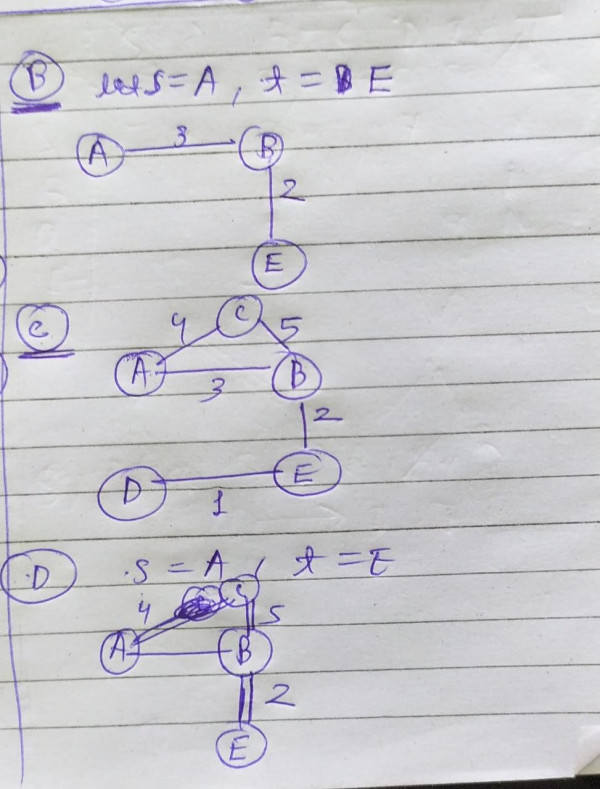 B let s = A, t = E
3
A B
2
E
C
C
4 5
A B
3
2
D E
1
D s = A, t = E
C
4 5
A B
2
E